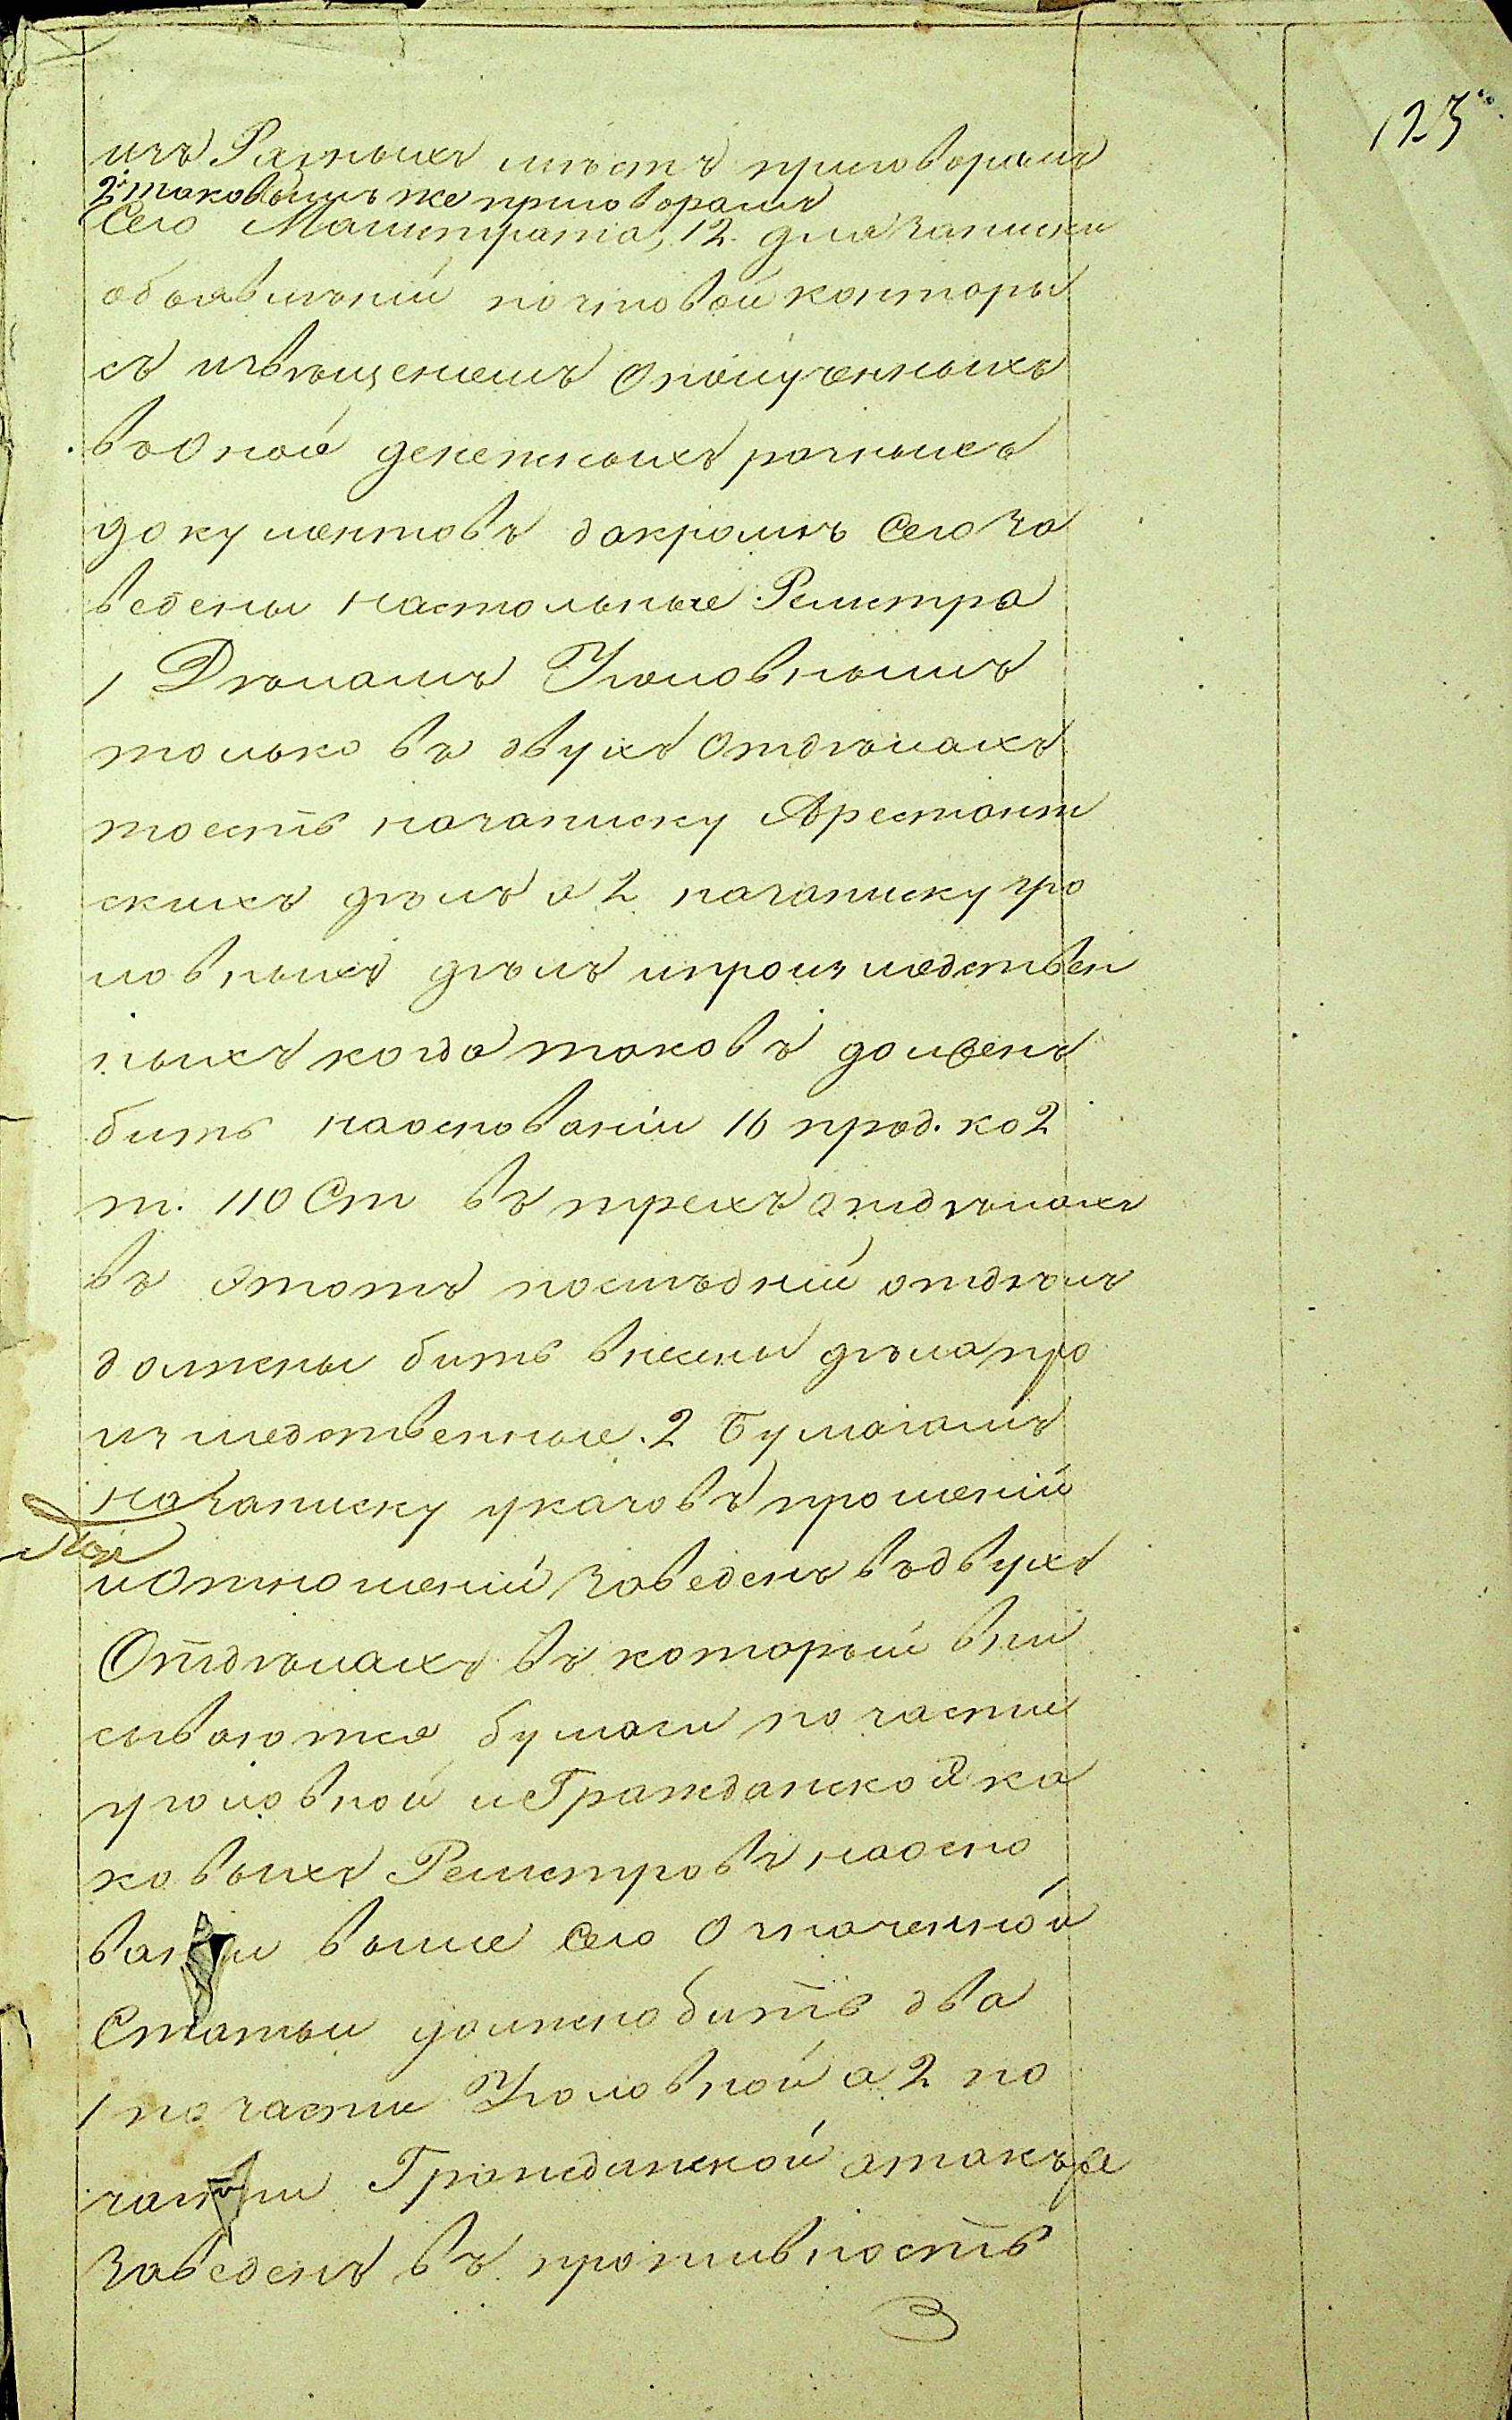 123
изъ Разныхъ мѣстъ приговорамъ
2 таковымъ же приговорамъ
Сего Магистрата, 12. для записки
объявленій почтовой конторы
съ извѣщеніемъ Ополученныхъ
въОной денежныхъ разныхъ
документовъ закромѣ Сего за
ведены настольные Регистра
1 Дѣламъ Уголовнымъ
только въ двухъ отдѣлахъ
тоесть назаписку Арестант
скихъ дѣлъ а 2 назаписку уго
ловныхъ дѣлъ ипроизшедствен
ныхъ когда таковъ долженъ
бить наоснованіи 16 прод. ко 2
т. 110 Ст въ трехъ отдѣлахъ
въ Этотъ послѣдній отдѣлъ
должны бить внесены дѣла про
изшедственные. 2 Бумагамъ
назаписку указовъ прошеній
иОтношеній Заведенъ въдвухъ
Отдѣлахъ въ который впи
сываются бумаги по части
уголовной иГражданской ка
ковыхъ Регистровъ наосно
ваніи выше Сего Означенной
Статьи должно бить два
1 по части Уголовной а 2 по
части Гражданской атакъ
Заведенъ въ противность